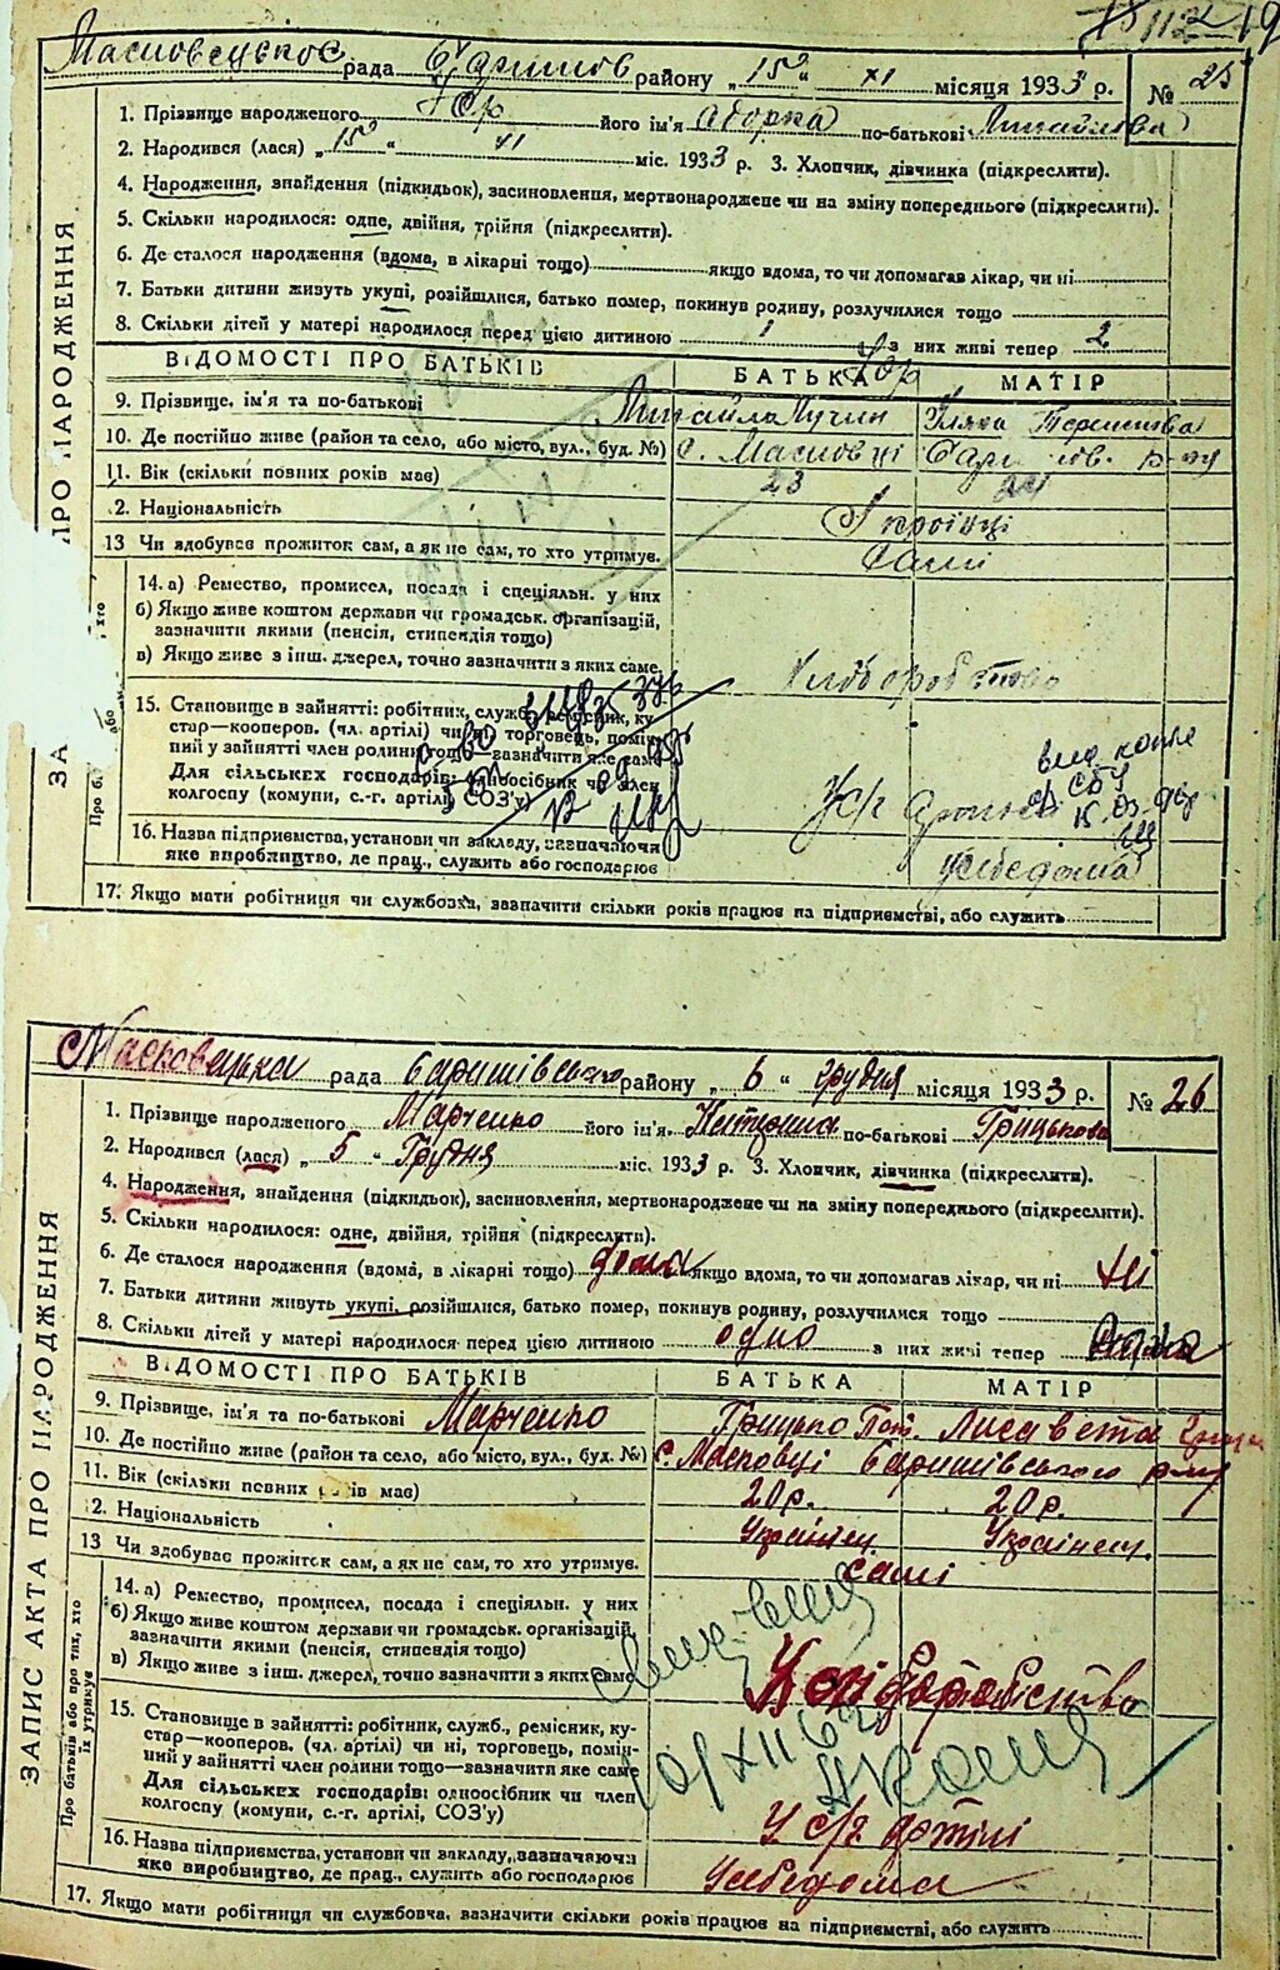 Масковецькоє рада Баришов району „15“ XI місяця 1933 р. № 25
1. Прізвище народженого його ім'я по-батькові Михайлова
2. Народився (лася) „15“ XI міс. 1933 р. 3. Хлопчик, дівчинка (підкреслити).
4. Народження, знайдення (підкидьок), засиновлення, мертвонароджене чи на зміну попереднього (підкреслити).
5. Скільки народилося: одне, двійня, трійня (підкреслити).
6. Де сталося народження (вдома, в лікарні тощо) якщо вдома, то чи допомагав лікар, чи ні
7. Батьки дитини живуть укупі, розійшлися, батько помер, покинув родину, розлучилися тощо
8. Скільки дітей у матері народилося перед цією дитиною 1 з них живі тепер 2
ВІДОМОСТІ ПРО БАТЬКІВ БАТЬКА МАТІР
9. Прізвище, ім'я та по-батькові Михайла
10. Де постійно живе (район та село, або місто, вул., буд. №) с. Масковці Бариш ов. р-ну
11. Вік (скільки повних років має) 23 24
2. Національність Українці
13 Чи здобуває прожиток сам, а як не сам, то хто утримує. Самі
14. а) Ремество, промисел, посада і спеціяльн. у них
б) Якщо живе коштом держави чи громадськ. організацій, зазначити якими (пенсія, стипендія тощо)
в) Якщо живе з інш. джерел, точно зазначити з яких саме. Хліборобство
15. Становище в зайнятті: робітник, служб., ремісник, ку-
стар—кооперов. (чл. артілі) чи ні, торговець, помі-
ний у зайнятті член родини тощо—зазначити яке саме
Для сільських господарів: одноосібник чи член
колгоспу (комуни, с.-г. артілі, СОЗ'у) У с/г артілі
16. Назва підприємства, установи чи закладу, зазначаючи
яке виробництво, де прац., служить або господарює
17. Якщо мати робітниця чи службовка, зазначити скільки років працює на підприємстві, або служить
Масковецька рада Баришівського району „6“ грудня місяця 1933 р. № 26
1. Прізвище народженого Марченко його ім'я по-батькові Грицькова
2. Народився (лася) „5“ Грудня міс. 1933 р. 3. Хлопчик, дівчинка (підкреслити).
4. Народження, знайдення (підкидьок), засиновлення, мертвонароджене чи на зміну попереднього (підкреслити).
5. Скільки народилося: одне, двійня, трійня (підкреслити).
6. Де сталося народження (вдома, в лікарні тощо) дома якщо вдома, то чи допомагав лікар, чи ні ні
7. Батьки дитини живуть укупі, розійшлися, батько помер, покинув родину, розлучилися тощо
8. Скільки дітей у матері народилося перед цією дитиною одно з них живі тепер
ВІДОМОСТІ ПРО БАТЬКІВ БАТЬКА МАТІР
9. Прізвище, ім'я та по-батькові Марченко Грицько Пот. Лисавета
10. Де постійно живе (район та село, або місто, вул., буд. №) с. Масковці Баришівського р-ну
11. Вік (скільки повних ів має) 20 р. 20 р.
2. Національність Українец. Українец.
13 Чи здобуває прожиток сам, а як не сам, то хто утримує. самі
14. а) Ремество, промисел, посада і спеціяльн. у них
б) Якщо живе коштом держави чи громадськ. організацій, зазначити якими (пенсія, стипендія тощо)
в) Якщо живе з інш. джерел, точно зазначити з яких саме
15. Становище в зайнятті: робітник, служб., ремісник, ку-
стар—кооперов. (чл. артілі) чи ні, торговець, поміч-
ний у зайнятті член родини тощо—зазначити яке саме
Для сільських господарів: одноосібник чи член
колгоспу (комуни, с.-г. артілі, СОЗ'у) У с/г артілі
16. Назва підприємства, установи чи закладу, зазначаючи
яке виробництво, де прац., служить або господарює
17. Якщо мати робітниця чи службовча, зазначити скільки років працює на підприємстві, або служить
ЗАПИС АКТА ПРО НАРОДЖЕННЯ
Про батьків або про тих, хто їх утримує